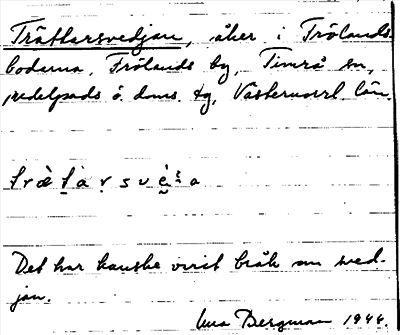 Trättarsvedjan, åker i Frölands
bodarna, Frölands by, Timrå sn,
Medelpads ö. doms. tg, Västernorrl. län.
Det har kanske varit bråk om sved-
jan.
Bergman 1944.